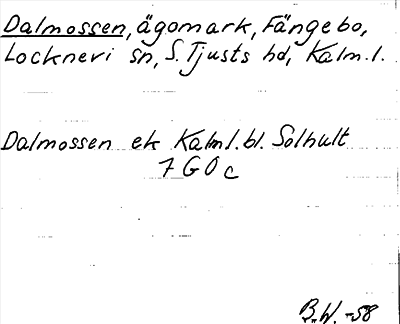 Dalmossen, ägomark, Fängebo,
Locknevi sn, S. Tjusts hd, Kalm.l.
Dalmossen ek Kalml.bl. Solhult
7 G O c
B.W. -58